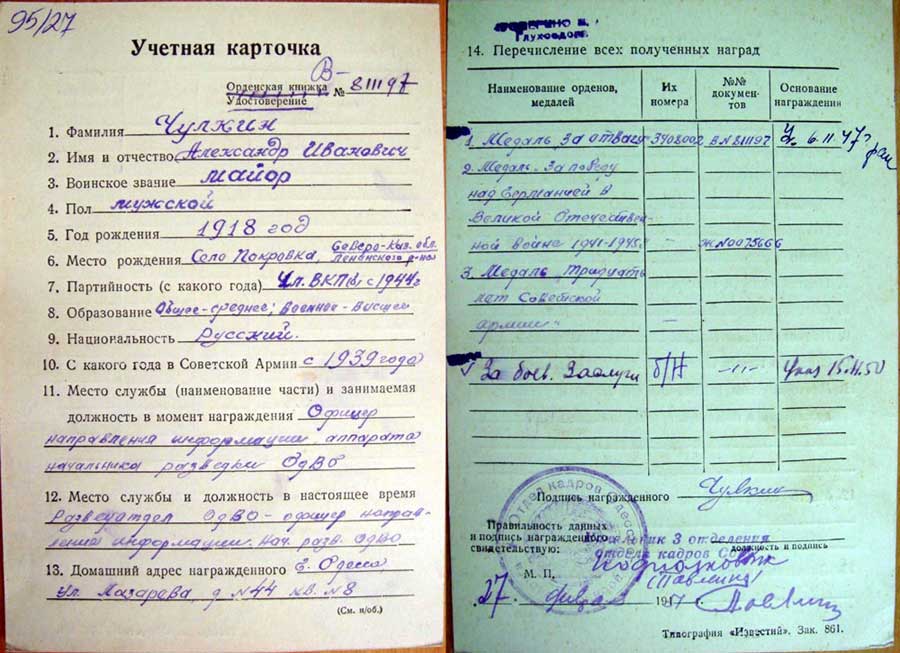 95/27
Учетная карточка
В-
Орденская книжка
Удостоверение № 811197
1. Фамилия Чулкин
2. Имя и отчество Александр Иванович
3. Воинское звание майор
4. Пол мужской
5. Год рождения 1918 год
Северо-Каз. обл.
6. Место рождения Село Покровка, Ленинского р-на
7. Партийность (с какого года) Чл. ВКП(б) с 1944г
8. Образование Общее-среднее; Военное-высшее
9. Национальность Русский.
10. С какого года в Советской Армии с 1939 года
11. Место службы (наименование части) и занимаемая
должность в момент награждения Офицер
направления информации аппарата
начальника разведки ОдВО
12. Место службы и должность в настоящее время
Разведотдел ОдВО - офицер направ-
ления информации. Нач. разв. ОдВО
13. Домашний адрес награжденного г. Одесса
ул. Лазарева, д. №44 кв. №8
(См. н/об.)
14. Перечисление всех полученных наград
Наименование орденов, медалей
Их номера
№№ документов
Основание награждения
1. Медаль "За отвагу" 3408002 В№811197 Ук. 6.11.47г
2. Медаль "За победу
над Германией в
Великой Отечествен-
ной войне 1941-1945г." - Ж№0075666
3. Медаль "Тридцать
лет Советской
армии" -
За боев. Заслуги б/н -"- Указ 15.11.50
Подпись награжденного Чулкин
Правильность данных
и подпись награжденного
свидетельствую:
Начальник 3 отделения
отдела кадров
должность и подпись
подполковник
(Павлина)
М. П.
27
Типография «Известий». Зак. 861.